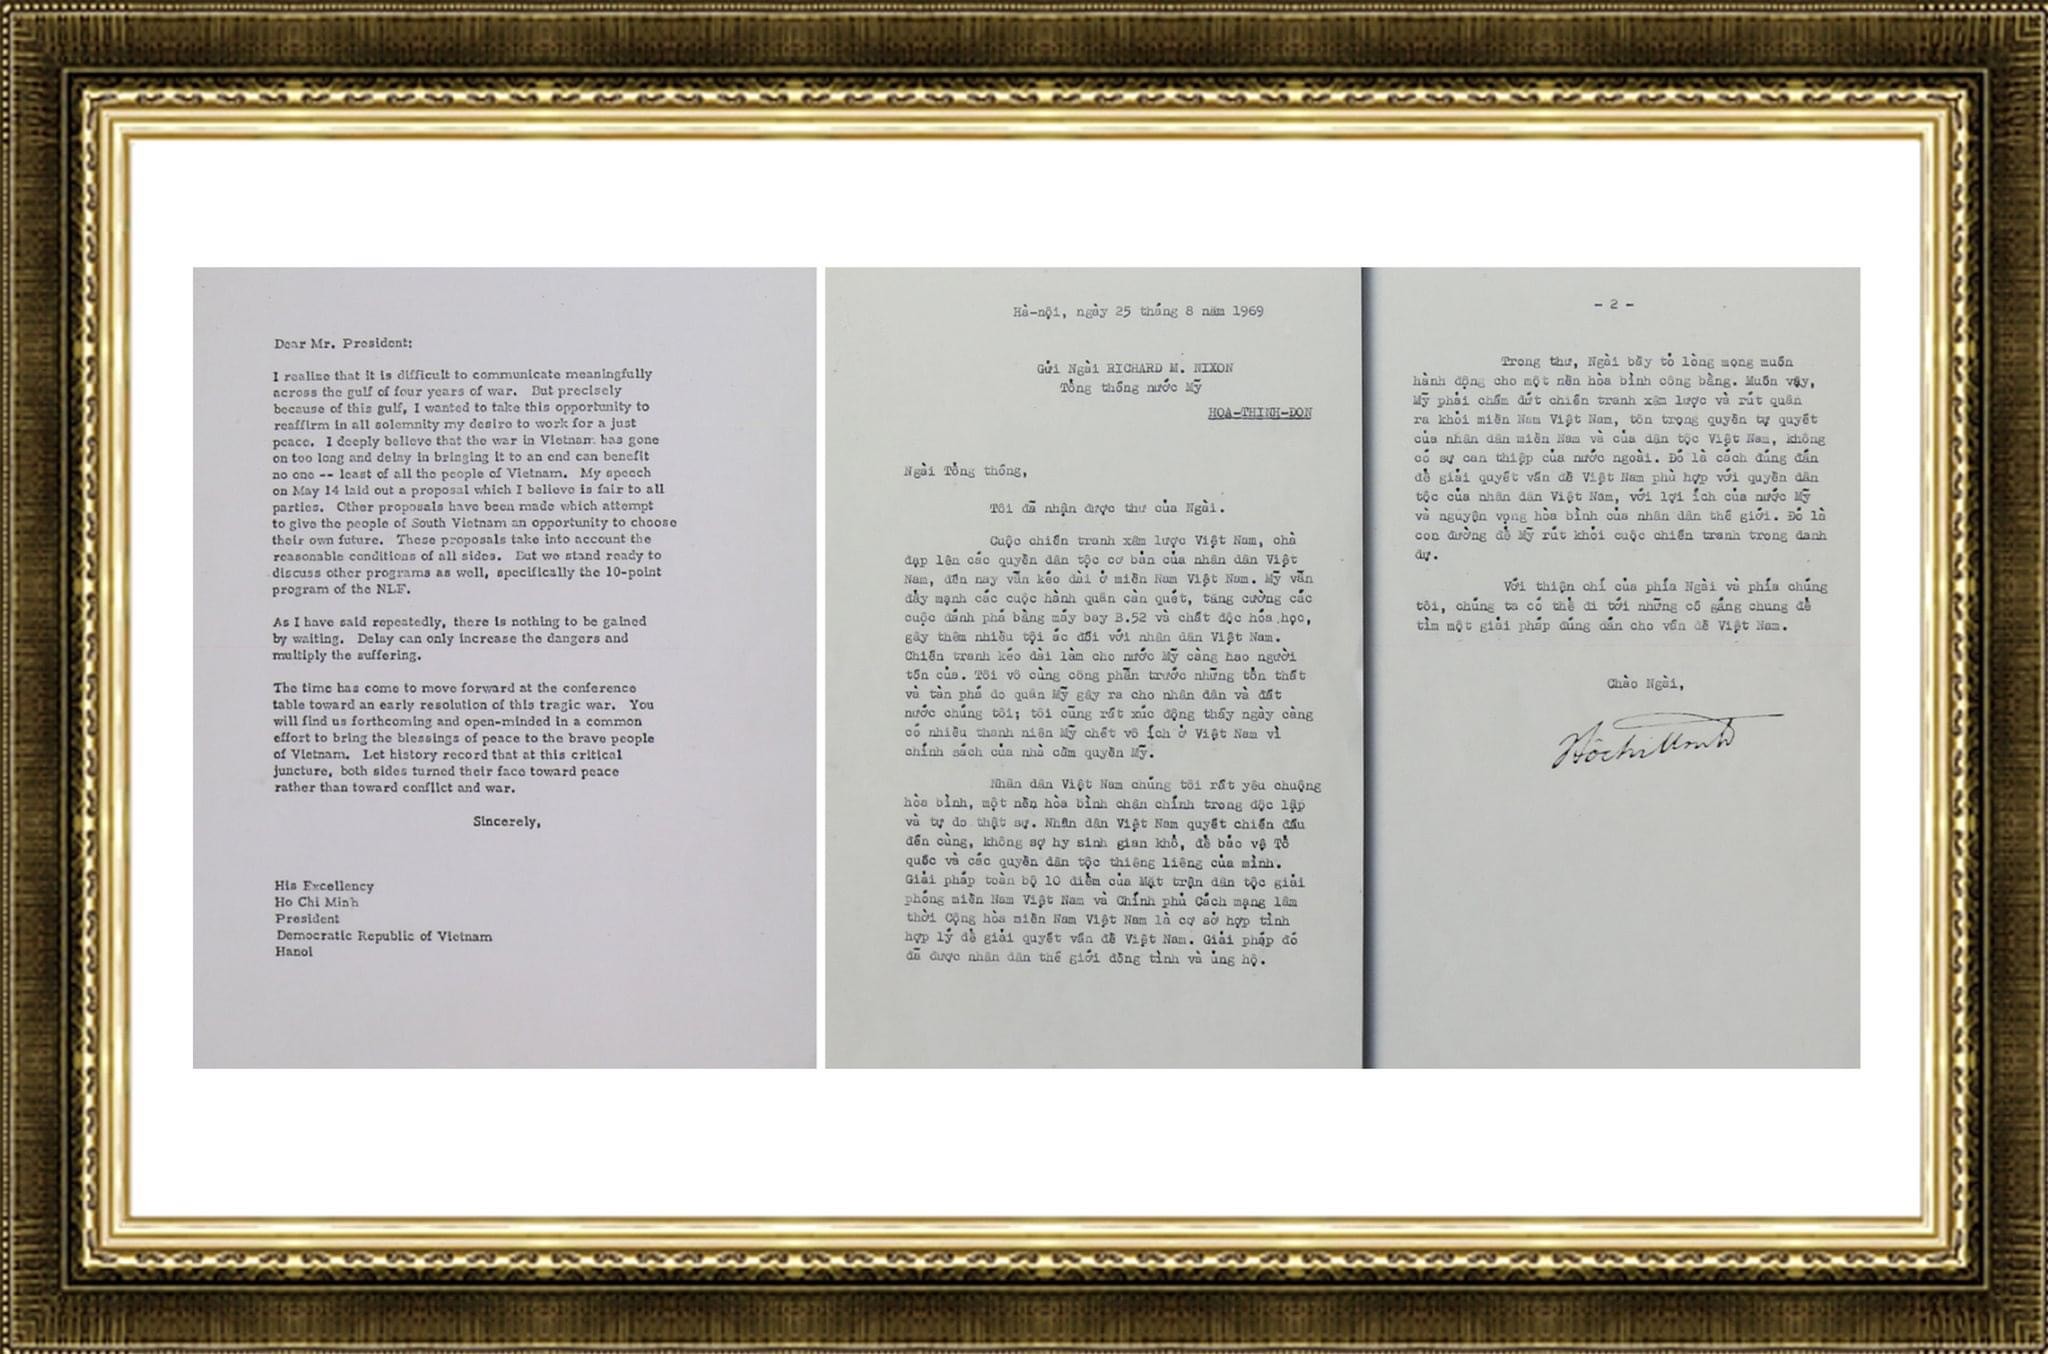 Dear Mr. President:
I realize that it is difficult to communicate meaningfully
across the gulf of four years of war. But precisely
because of this gulf, I wanted to take this opportunity to
reaffirm in all solemnity my desire to work for a just
peace. I deeply believe that the war in Vietnam has gone
on too long and delay in bringing it to an end can benefit
no one -- least of all the people of Vietnam. My speech
on May 14 laid out a proposal which I believe is fair to all
parties. Other proposals have been made which attempt
to give the people of South Vietnam an opportunity to choose
their own future. These proposals take into account the
reasonable conditions of all sides. But we stand ready to
discuss other programs as well, specifically the 10-point
program of the NLF.
As I have said repeatedly, there is nothing to be gained
by waiting. Delay can only increase the dangers and
multiply the suffering.
The time has come to move forward at the conference
table toward an early resolution of this tragic war. You
will find us forthcoming and open-minded in a common
effort to bring the blessings of peace to the brave people
of Vietnam. Let history record that at this critical
juncture, both sides turned their face toward peace
rather than toward conflict and war.
Sincerely,
His Excellency
Ho Chi Minh
President
Democratic Republic of Vietnam
Hanoi
Hà-nội, ngày 25 tháng 8 năm 1969
Gửi Ngài RICHARD M. NIXON
Tổng thống nước Mỹ
HOA-THỊNH-ĐỐN
Ngài Tổng thống,
Tôi đã nhận được thư của Ngài.
Cuộc chiến tranh xâm lược Việt Nam, chà
đạp lên các quyền dân tộc cơ bản của nhân dân Việt
Nam, đến nay vẫn kéo dài ở miền Nam Việt Nam. Mỹ vẫn
đẩy mạnh các cuộc hành quân càn quét, tăng cường các
cuộc đánh phá bằng máy bay B.52 và chất độc hóa học,
gây thêm nhiều tội ác đối với nhân dân Việt Nam.
Chiến tranh kéo dài làm cho nước Mỹ càng hao người
tốn của. Tôi vô cùng công phẫn trước những tổn thất
và tàn phá do quân Mỹ gây ra cho nhân dân và đất
nước chúng tôi; tôi cũng rất xúc động thấy ngày càng
có nhiều thanh niên Mỹ chết vô ích ở Việt Nam vì
chính sách của nhà cầm quyền Mỹ.
Nhân dân Việt Nam chúng tôi rất yêu chuộng
hòa bình, một nền hòa bình chân chính trong độc lập
và tự do thật sự. Nhân dân Việt Nam quyết chiến đấu
đến cùng, không sợ hy sinh gian khổ, để bảo vệ Tổ
quốc và các quyền dân tộc thiêng liêng của mình.
Giải pháp toàn bộ 10 điểm của Mặt trận dân tộc giải
phóng miền Nam Việt Nam và Chính phủ Cách mạng lâm
thời Cộng hòa miền Nam Việt Nam là cơ sở hợp tình
hợp lý để giải quyết vấn đề Việt Nam. Giải pháp đó
đã được nhân dân thế giới đồng tình và ủng hộ.
- 2 -
Trong thư, Ngài bày tỏ lòng mong muốn
hành động cho một nền hòa bình công bằng. Muốn vậy,
Mỹ phải chấm dứt chiến tranh xâm lược và rút quân
ra khỏi miền Nam Việt Nam, tôn trọng quyền tự quyết
của nhân dân miền Nam và của dân tộc Việt Nam, không
có sự can thiệp của nước ngoài. Đó là cách đúng đắn
để giải quyết vấn đề Việt Nam phù hợp với quyền dân
tộc của nhân dân Việt Nam, với lợi ích của nước Mỹ
và nguyện vọng hòa bình của nhân dân thế giới. Đó là
con đường để Mỹ rút khỏi cuộc chiến tranh trong danh
dự.
Với thiện chí của phía Ngài và phía chúng
tôi, chúng ta có thể đi tới những cố gắng chung để
tìm một giải pháp đúng đắn cho vấn đề Việt Nam.
Chào Ngài,
Hồ Chí Minh